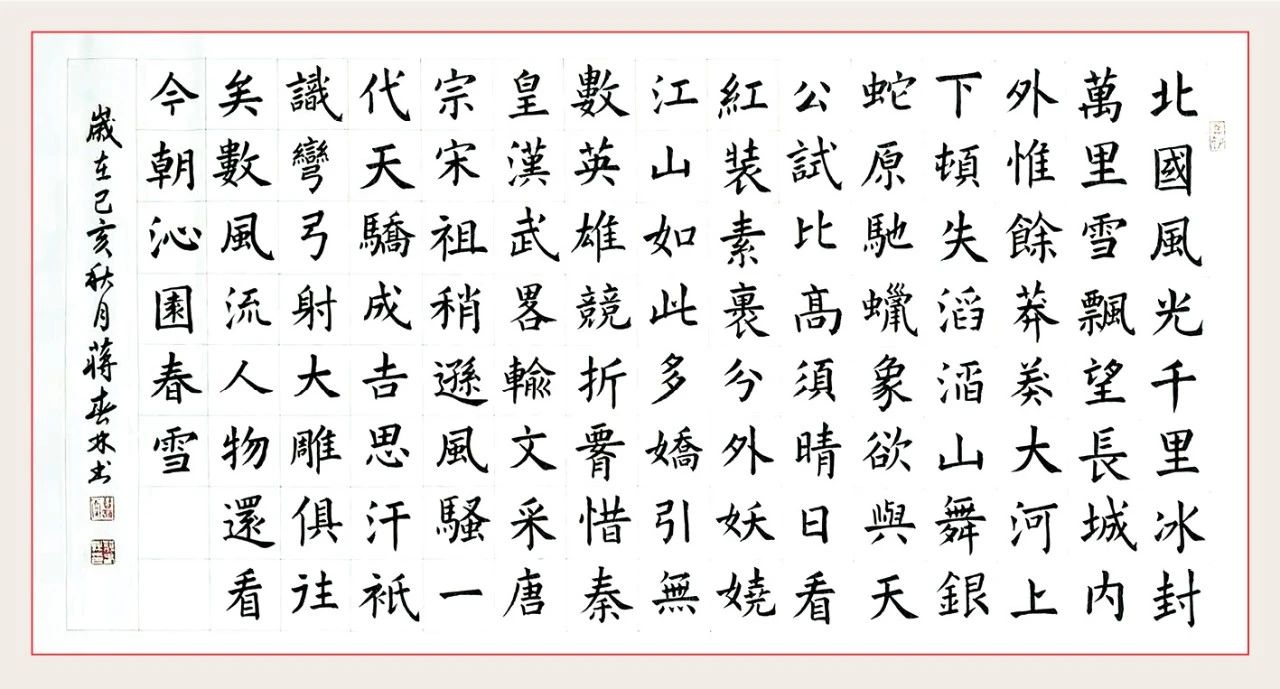 北國風光千里冰封
萬里雪飄望長城内
外惟餘莽莽大河上
下頓失滔滔山舞銀
蛇原馳蠟象欲與天
公試比髙須晴日看
紅裝素裹分外妖嬈
江山如此多嬌引無
數英雄競折腰惜秦
皇漢武畧輸文采唐
宗宋祖稍遜風騷一
代天驕成吉思汗衹
識彎弓射大雕俱往
矣數風流人物還看
今朝沁園春雪
歲在己亥秋月蔣春林书